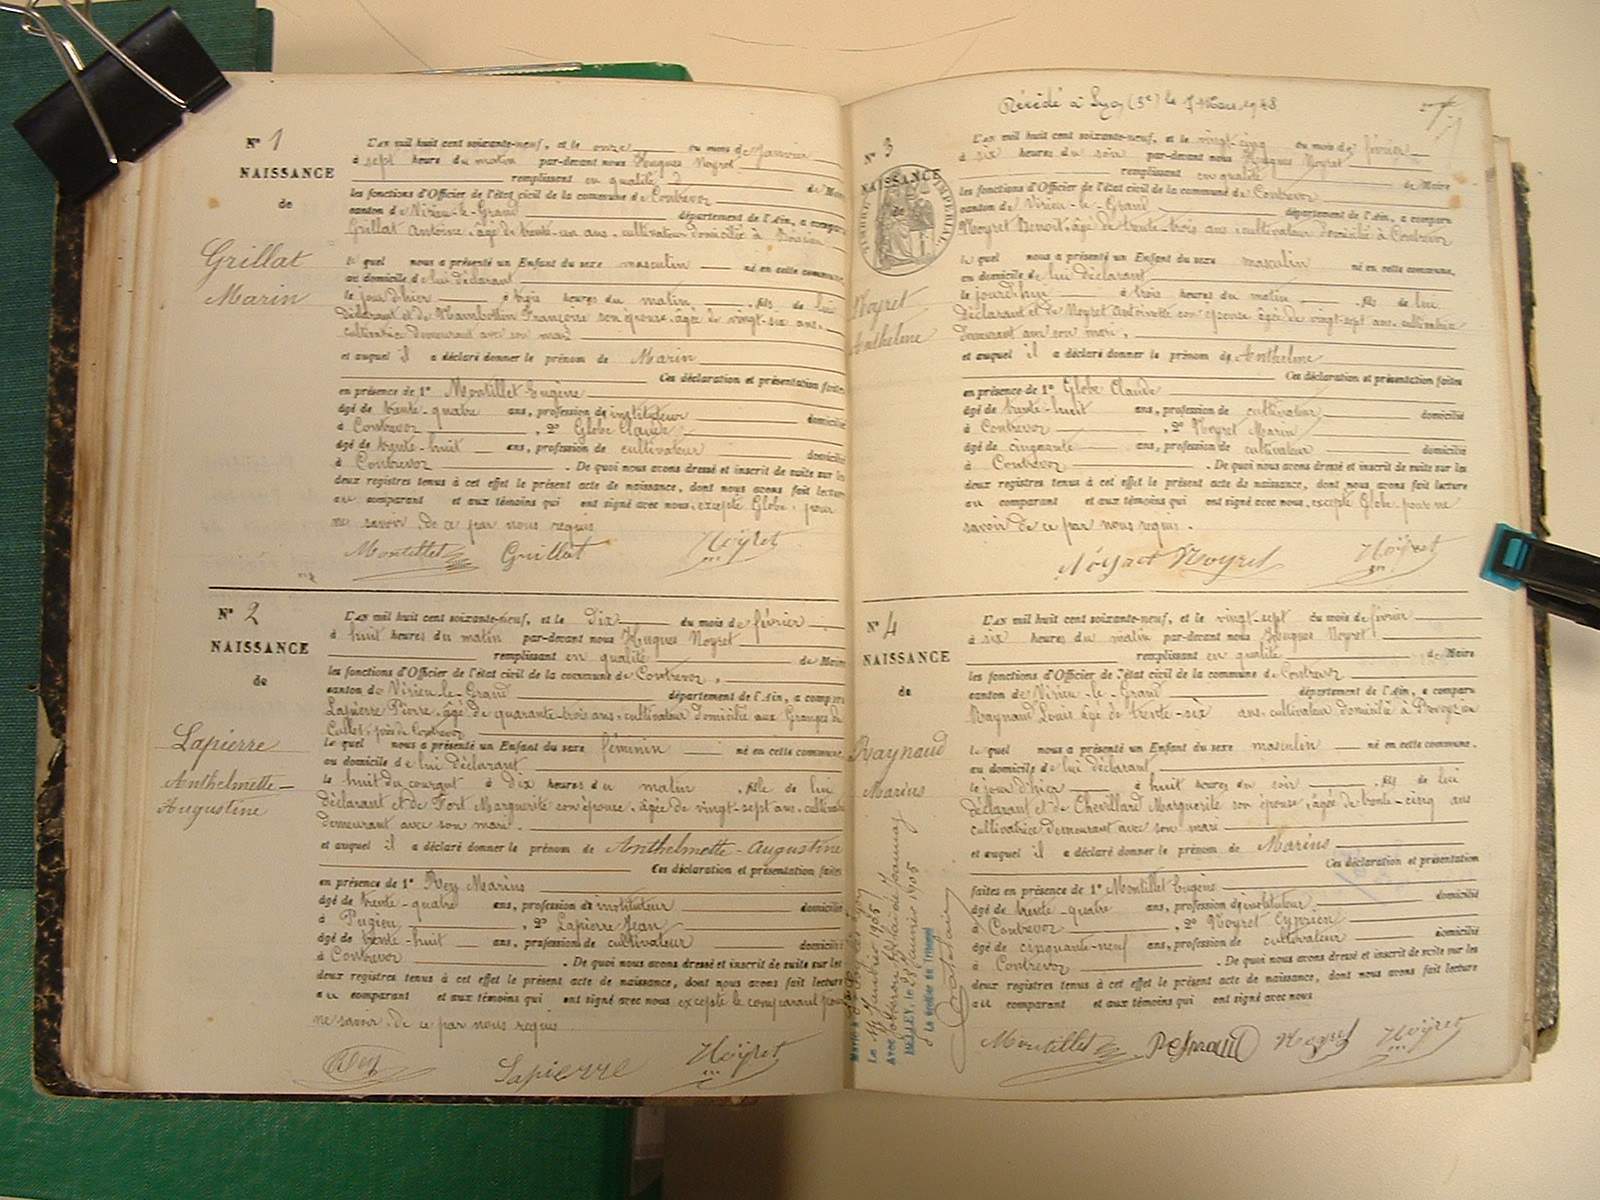 N° 1
NAISSANCE
de
Grillat
Marin
L'an mil huit cent soixante-neuf, et le onze du mois de janvier
à sept heure du matin par-devant nous Hugues Noyret
remplissant en qualité de Maire
les fonctions d'Officier de l'état civil de la commune de Contrevoz
canton de Virieu-le-Grand département de l'Ain, a comparu
Grillat Antoine, âgé de trente-un ans, cultivateur domicilié à
le quel nous a présenté un Enfant du sexe masculin né en cette commune,
au domicile de lui déclarant
le jour d'hier à trois heures du matin, fils de lui
déclarant et de Françoise son épouse, âgée de vingt-six ans,
cultivatrice demeurant avec son mari
et auquel il a déclaré donner le prénom de Marin
Ces déclaration et présentation faites
en présence de 1° Montillet Eugène
âgé de trente-quatre ans, profession de instituteur domicilié
à Contrevoz, 2° Globe Claude
âgé de trente-huit ans, profession de cultivateur domicilié
à Contrevoz. De quoi nous avons dressé et inscrit de suite sur les
deux registres tenus à cet effet le présent acte de naissance, dont nous avons fait lecture
au comparant et aux témoins qui ont signé avec nous, excepté Globe, pour
ne savoir, de ce par nous requis
Montillet Grillat Noÿret
N° 2
NAISSANCE
de
Lapierre
Anthelmette-
Augustine
L'an mil huit cent soixante-neuf, et le dix du mois de février
à huit heures du matin par-devant nous Hugues Noyret
remplissant en qualité de Maire
les fonctions d'Officier de l'état civil de la commune de Contrevoz,
canton de Virieu-le-Grand département de l'Ain, a comparu
Lapierre Pierre, âgé de quarante-trois ans, cultivateur domicilié aux Granges de
Cullet, près de Contrevoz
le quel nous a présenté un Enfant du sexe féminin né en cette commune
au domicile de lui déclarant
le huit du courant à dix heures du matin, fille de lui
déclarant et de Fort Marguerite son épouse, âgée de vingt-sept ans, cultivatrice
demeurant avec son mari.
et auquel il a déclaré donner le prénom de Anthelmette-Augustine
Ces déclaration et présentation faites
en présence de 1° Rey Marius
âgé de trente-quatre ans, profession de instituteur domicilié
à Pugieu, 2° Lapierre Jean
âgé de trente-huit ans, profession de cultivateur domicilié
à Contrevoz. De quoi nous avons dressé et inscrit de suite sur les
deux registres tenus à cet effet le présent acte de naissance, dont nous avons fait lecture
au comparant et aux témoins qui ont signé avec nous excepté le comparant pour
ne savoir, de ce par nous requis
Rey Lapierre Noÿret
Décédé à Lyon (3e) le 7 Mars 1948
N° 3
NAISSANCE
de
TIMBRE IMPÉRIAL
Noyret
Anthelme
L'an mil huit cent soixante-neuf, et le vingt-cinq du mois de février
à six heures du soir par-devant nous Hugues Noyret
remplissant en qualité de Maire
les fonctions d'Officier de l'état civil de la commune de Contrevoz
canton de Virieu-le-Grand département de l'Ain, a comparu
Noyret Benoit, âgé de trente-trois ans, cultivateur domicilié à Contrevoz
le quel nous a présenté un Enfant du sexe masculin né en cette commune,
au domicile de lui déclarant
le jourd'hui à trois heures du matin, fils de lui
déclarant et de Noyret Antoinette son épouse âgée de vingt-sept ans, cultivatrice
demeurant avec son mari,
et auquel il a déclaré donner le prénom de Anthelme
Ces déclaration et présentation faites
en présence de 1° Globe Claude
âgé de trente-huit ans, profession de cultivateur domicilié
à Contrevoz, 2° Noyret Marin
âgé de cinquante ans, profession de cultivateur domicilié
à Contrevoz. De quoi nous avons dressé et inscrit de suite sur les
deux registres tenus à cet effet le présent acte de naissance, dont nous avons fait lecture
au comparant et aux témoins qui ont signé avec nous, excepté Globe pour ne
savoir de ce par nous requis.
Noyret Noyret Noÿret
N° 4
NAISSANCE
de
Raynaud
Marius
L'an mil huit cent soixante-neuf, et le vingt-sept du mois de février
à six heures du matin par-devant nous Hugues Noyret
remplissant en qualité de Maire
les fonctions d'Officier de l'état civil de la commune de Contrevoz
canton de Virieu-le-Grand département de l'Ain, a comparu
Raynaud Louis âgé de trente-six ans, cultivateur domicilié à
le quel nous a présenté un Enfant du sexe masculin né en cette commune.
au domicile de lui déclarant
le jour d'hier à huit heures du soir, fils de lui
déclarant et de Chevillard Marguerite son épouse, âgée de trente-cinq ans
cultivatrice demeurant avec son mari
et auquel il a déclaré donner le prénom de Marius
Ces déclaration et présentation
faites en présence de 1° Montillet Eugène
âgé de trente-quatre ans, profession de instituteur domicilié
à Contrevoz, 2° Noyret Cyprien
âgé de cinquante-neuf ans, profession de cultivateur domicilié
à Contrevoz. De quoi nous avons dressé et inscrit de suite sur les
deux registres tenus à cet effet le présent acte de naissance, dont nous avons fait lecture
au comparant et aux témoins qui ont signé avec nous
Montillet Reynaud Noyret Noÿret
Marié à
Le Janvier 1905
Avec
BELLEY, le 23 Janvier 1905
Le Greffier du Tribunal